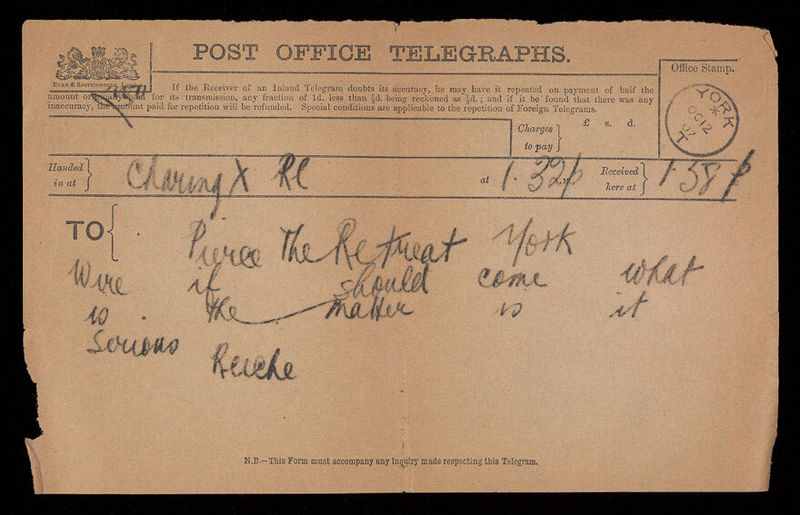 POST OFFICE TELEGRAPHS.
If the Receiver of an Inland Telegram doubts its accuracy, he may have it repeated on payment of half the
amount originally paid for its transmission, any fraction of 1d. less than ½d. being reckoned as ½d.; and if it be found that there was any
inaccuracy, the amount paid for repetition will be refunded. Special conditions are applicable to the repetition of Foreign Telegrams.
Office Stamp.
YORK
OC 12
Charges to pay
£ s. d.
Handed in at
Charing X
at
1.32 p
Received here at
1.58 p
TO
Pierce The Retreat York
Wire if should come what
is the matter is it
Serious
N.B.—This Form must accompany any Inquiry made respecting this Telegram.